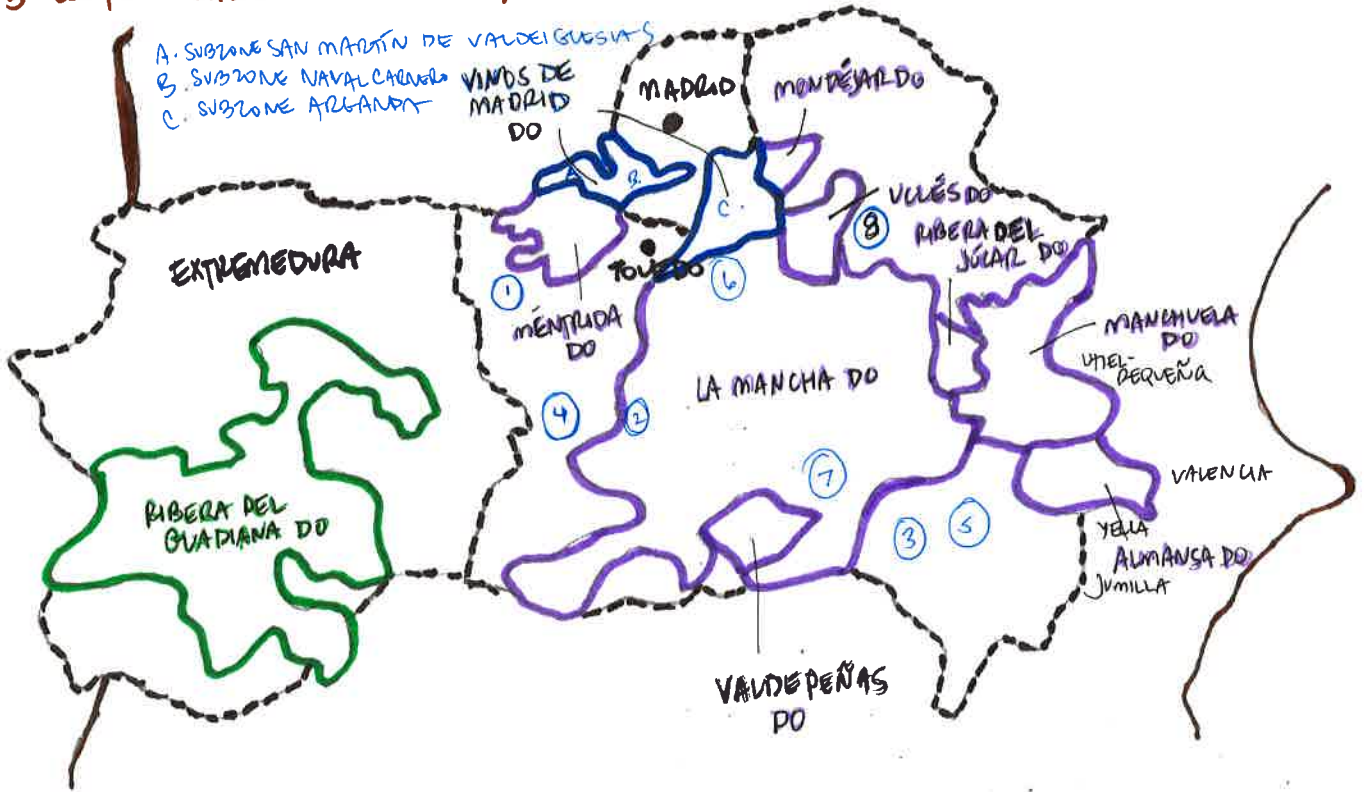 A. SUBZONE SAN MARTÍN DE VALDEIGLESIAS
B. SUBZONE NAVALCARNERO
C. SUBZONE ARGANDA
VINOS DE
MADRID
DO
MADRID
MONDÉJAR DO
A
B.
C.
UCLÉS DO
8
RIBERA DEL
JÚCAR DO
EXTREMEDURA
TOLEDO
1
6
MÉNTRIDA
DO
MANCHUELA
DO
UTIEL-
REQUEÑA
LA MANCHA DO
4
2
7
VALENCIA
RIBERA DEL
GUADIANA DO
3
5
YELLA
ALMANSA DO
JUMILLA
VALDEPEÑAS
DO